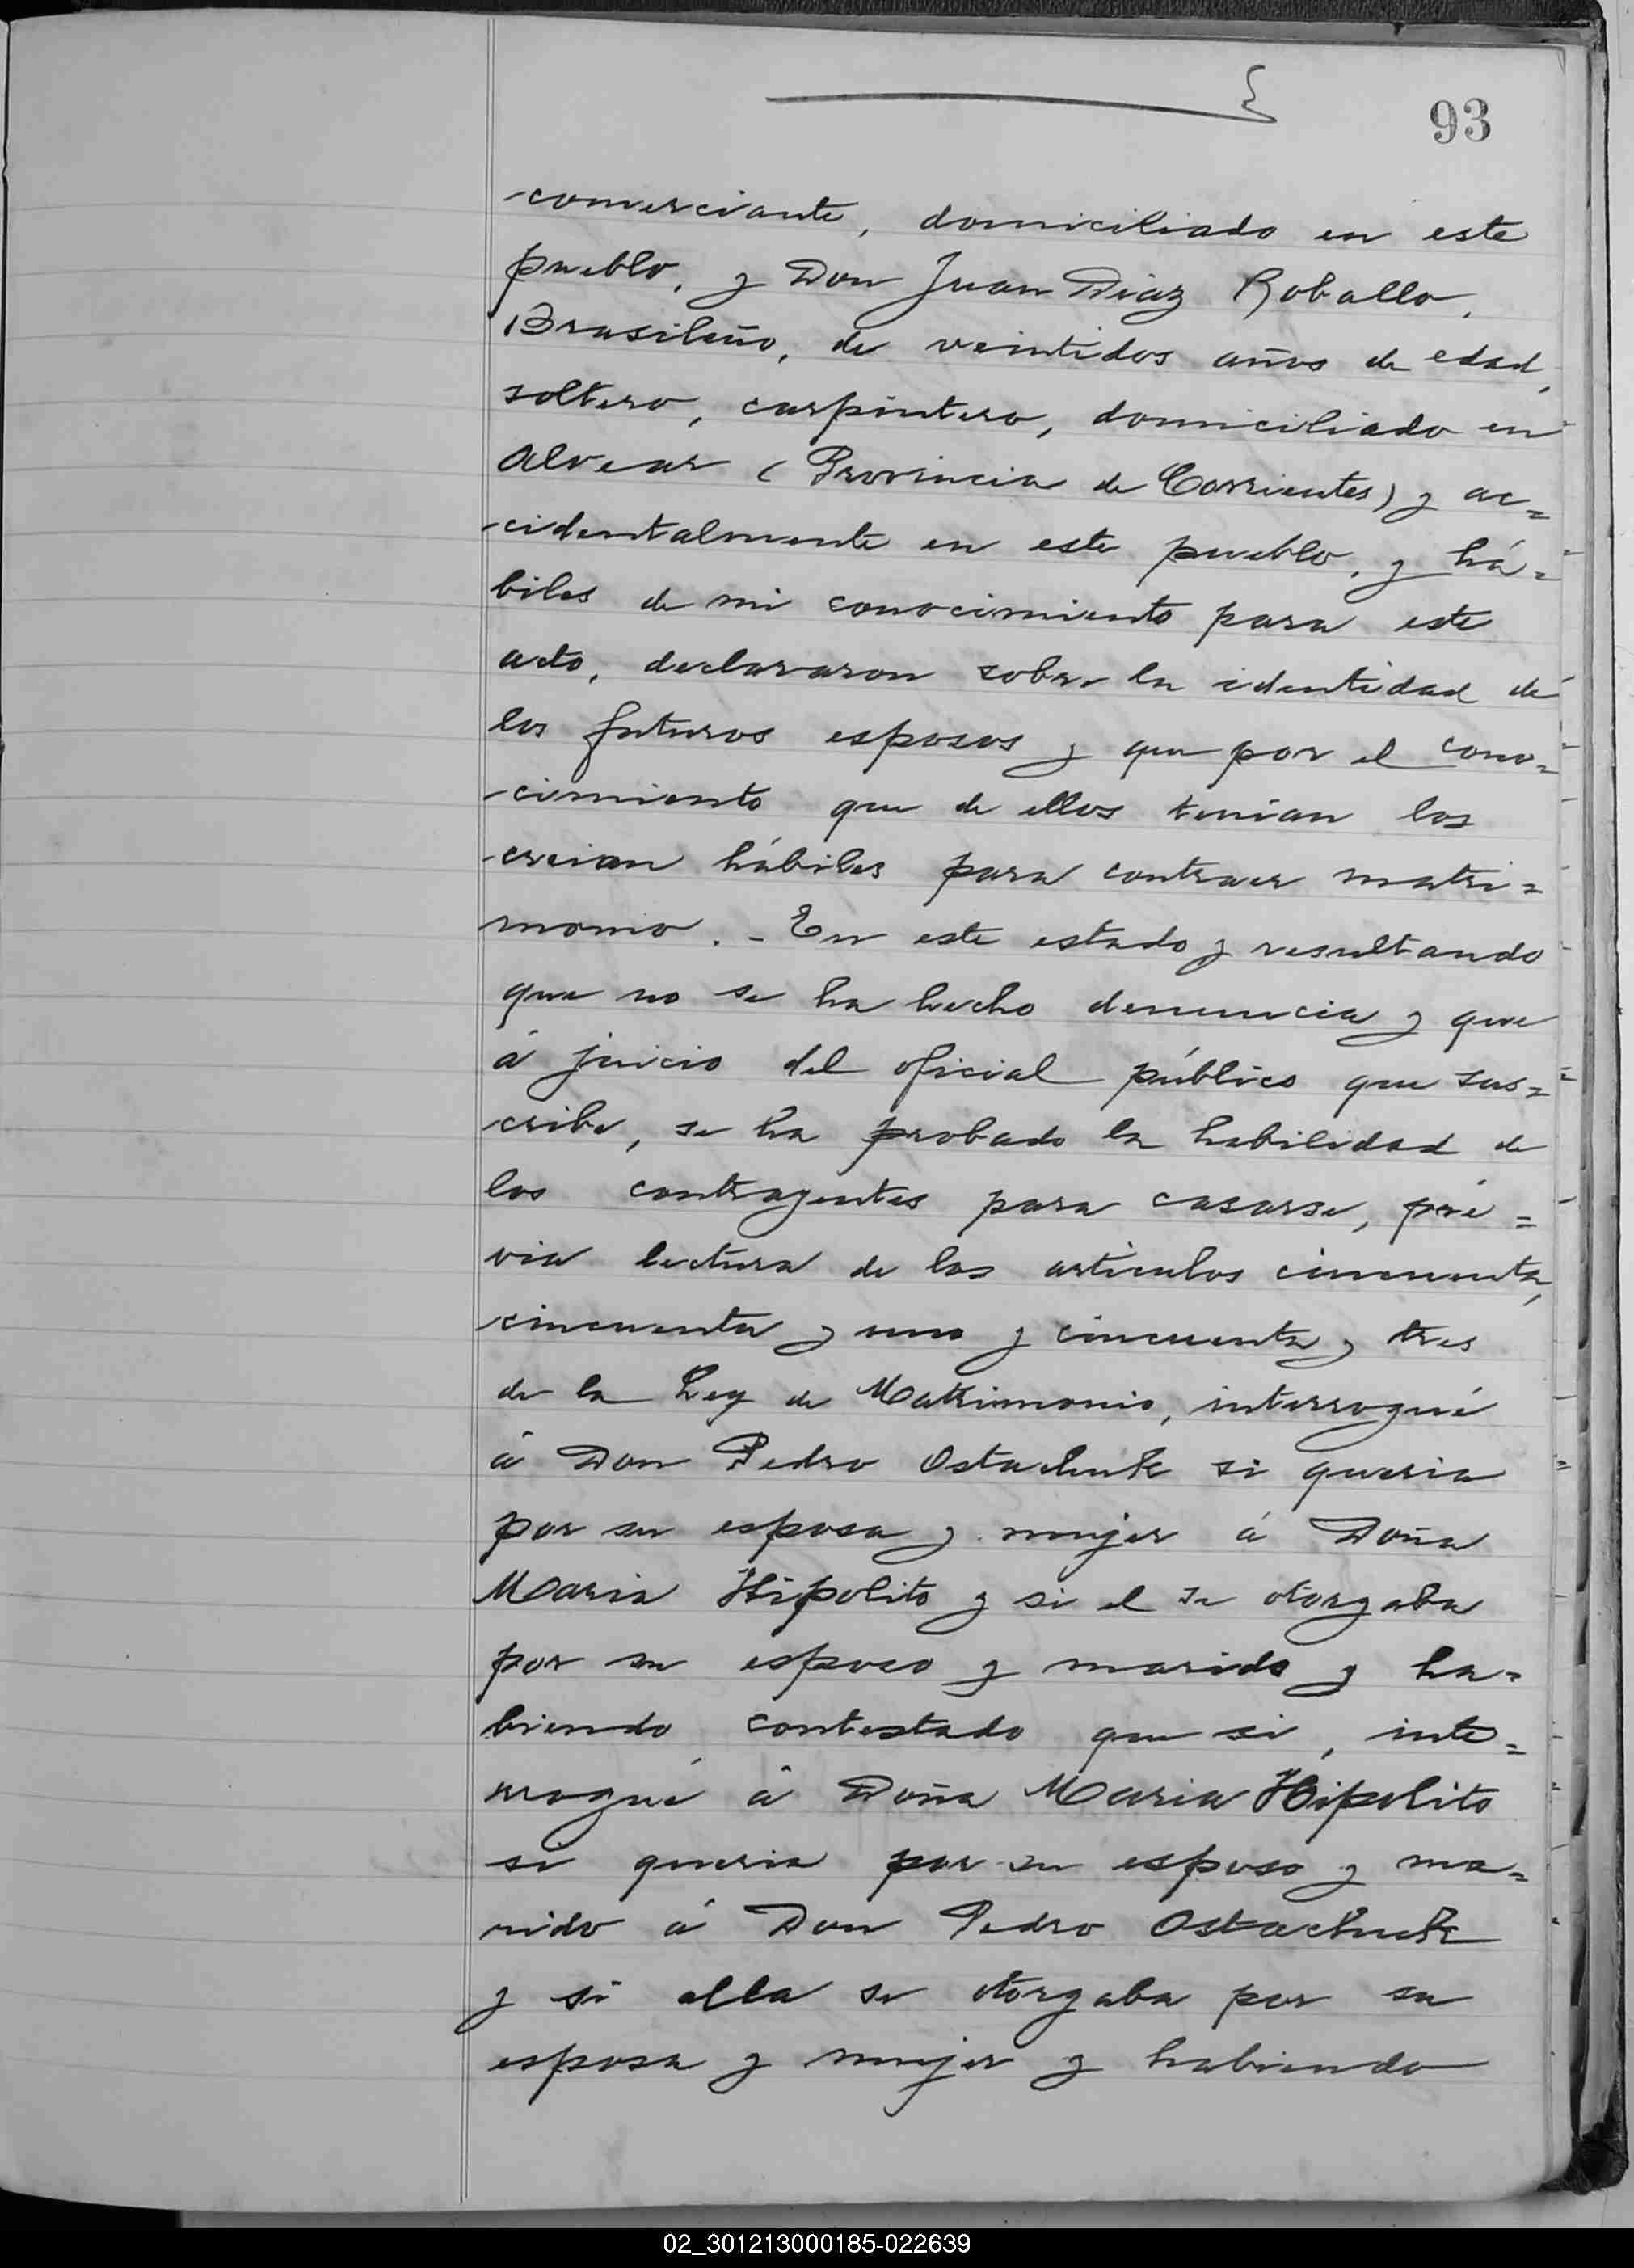 93
comerciante, domiciliado en este
pueblo, y Don Juan Diaz Roballo,
Brasileño, de veintidos años de edad,
soltero, carpintero, domiciliado en
Alvear (Provincia de Corrientes) y ac=
cidentalmente en este pueblo, y há=
biles de mi conocimiento para este
acto, declararon sobre la identidad de
los futuros esposos y que por el cono=
cimiento que de ellos tenian los
creian hábiles para contraer matri=
monio. - En este estado y resultando
que no se ha hecho denuncia y que
á juicio del oficial público que sus=
cribe, se ha probado la habilidad de
los contrayentes para casarse, pré=
via lectura de los artículos cincuenta,
cincuenta y uno y cincuenta y tres
de la Ley de Matrimonio, interrogué
á Don Pedro Ostachuk si queria
por su esposa y mujer á Doña
Maria Hipolito y si el se otorgaba
por su esposo y marido y ha=
biendo contestado que si, inte=
rrogué á Doña Maria Hipolito
si queria por su esposo y ma=
rido á Don Pedro Ostachuk
y si ella se otorgaba por su
esposa y mujer y habiendo
02_301213000185-022639